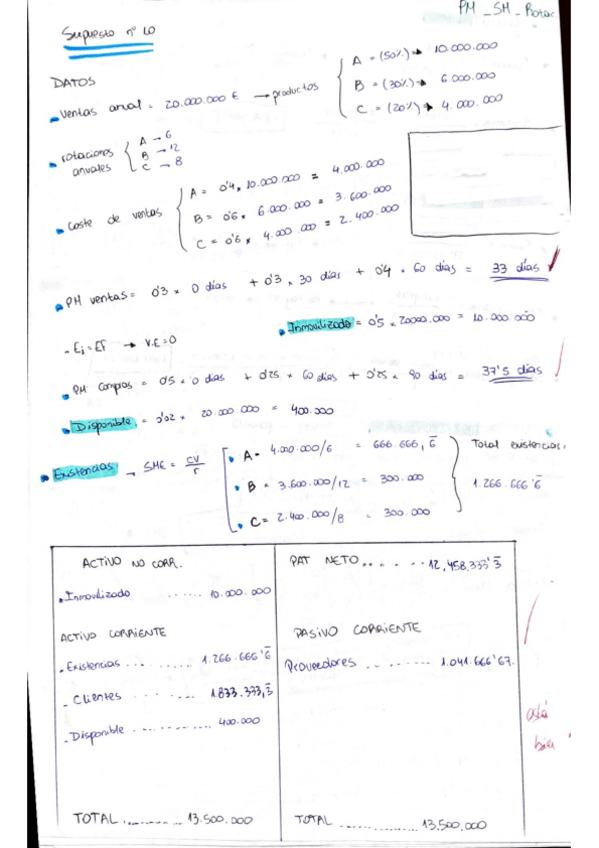 PM _ SM _ Rotac
Supuesto nº 10
DATOS
Ventas anual = 20.000.000 € → productos
A = (50%) → 10.000.000
B = (30%) → 6.000.000
C = (20%) → 4.000.000
rotaciones anuales
A → 6
B → 12
C → 8
Coste de ventas
A = 0'4 x 10.000.000 = 4.000.000
B = 0'6 x 6.000.000 = 3.600.000
C = 0'6 x 4.000.000 = 2.400.000
PM ventas = 0'3 x 0 días + 0'3 x 30 días + 0'4 x 60 días = 33 días
Inmovilizado = 0'5 x 20000.000 = 10.000.000
- Ei = EF → V.E = 0
PM compras = 0'5 x 0 días + 0'25 x 60 días + 0'25 x 90 días = 37'5 días
Disponible = 0'02 x 20.000.000 = 400.000
Existencias → SME = CV/r
A = 4.000.000/6 = 666.666,6̅
B = 3.600.000/12 = 300.000
C = 2.400.000/8 = 300.000
Total existencias:
1.266.666'6̅
ACTIVO NO CORR.
Inmovilizado ...... 10.000.000
ACTIVO CORRIENTE
- Existencias ... ........ 1.266.666'6̅
- Clientes ........ 1.833.333,3̅
- Disponible ............. 400.000
TOTAL ........... 13.500.000
PAT NETO ....... 12,458.333'3̅
PASIVO CORRIENTE
Proveedores ......... 1.041.666'67.
TOTAL .............. 13.500.000
está
bien